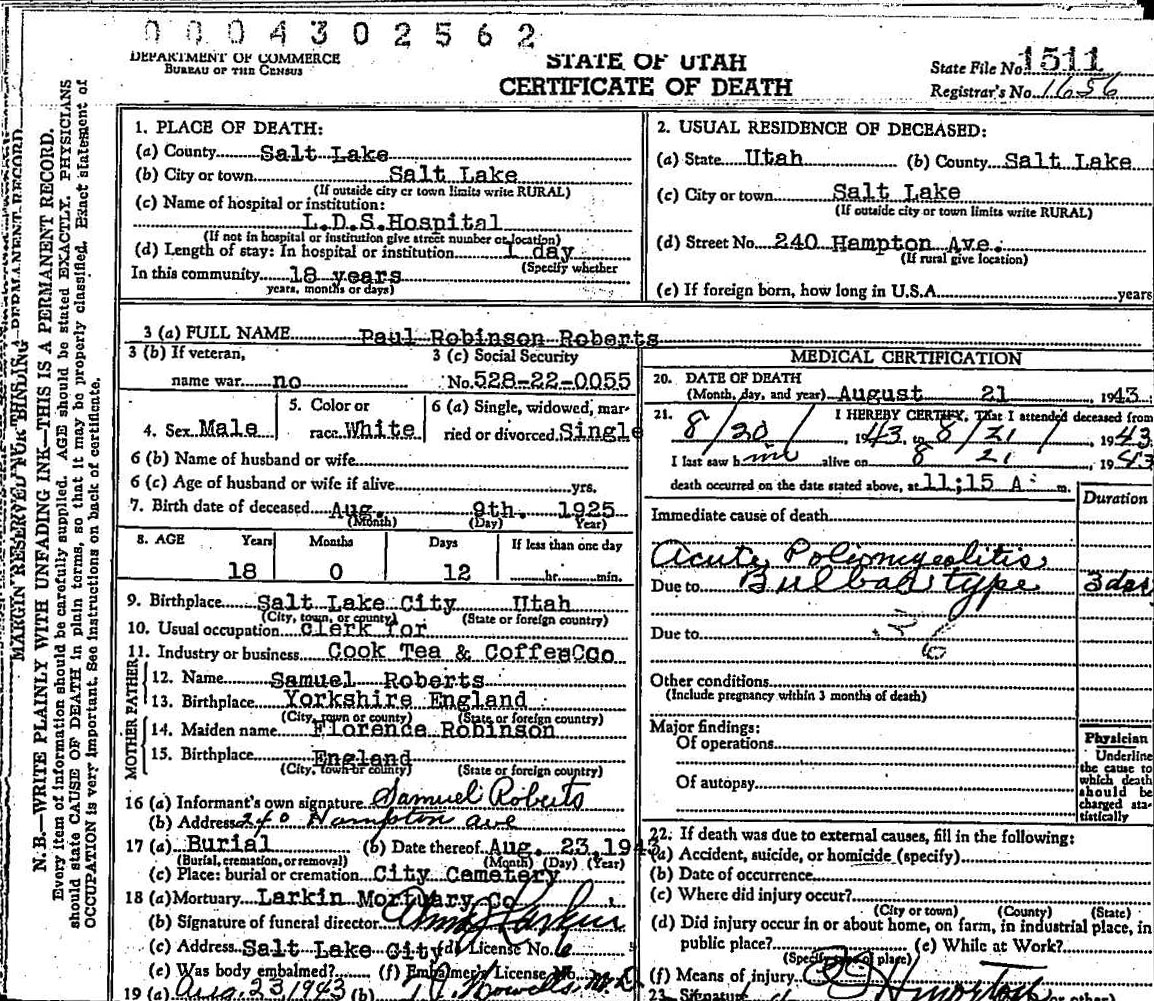 0004302562
DEPARTMENT OF COMMERCE
BUREAU OF THE CENSUS
STATE OF UTAH
CERTIFICATE OF DEATH
State File No. 1511
Registrar's No. 1656
MARGIN RESERVED FOR BINDING
N. B.—WRITE PLAINLY WITH UNFADING INK—THIS IS A PERMANENT RECORD.
Every item of information should be carefully supplied. AGE should be stated EXACTLY. PHYSICIANS
should state CAUSE OF DEATH in plain terms, so that it may be properly classified. Exact statement of
OCCUPATION is very important. See instructions on back of certificate.
1. PLACE OF DEATH:
(a) County Salt Lake
(b) City or town Salt Lake
(If outside city or town limits write RURAL)
(c) Name of hospital or institution:
L.D.S.Hospital
(If not in hospital or institution give street number or location)
(d) Length of stay: In hospital or institution 1 day
(Specify whether
In this community 18 years
years, months or days)
2. USUAL RESIDENCE OF DECEASED:
(a) State Utah (b) County Salt Lake
(c) City or town Salt Lake
(If outside city or town limits write RURAL)
(d) Street No. 240 Hampton Ave.
(If rural give location)
(e) If foreign born, how long in U.S.A. years
3 (a) FULL NAME Paul Robinson Roberts
3 (b) If veteran,
name war no
3 (c) Social Security
No. 528-22-0055
4. Sex Male
5. Color or
race White
6 (a) Single, widowed, mar-
ried or divorced Single
6 (b) Name of husband or wife
6 (c) Age of husband or wife if alive yrs.
7. Birth date of deceased Aug. 9th. 1925
(Month) (Day) Year)
8. AGE Years Months Days If less than one day
18 0 12 hr. min.
9. Birthplace Salt Lake City Utah
(City, town, or county) (State or foreign country)
10. Usual occupation clerk for
11. Industry or business Cook Tea & Coffee Co
MOTHER FATHER
12. Name Samuel Roberts
13. Birthplace Yorkshire England
(City, town or county) (State or foreign country)
14. Maiden name Florence Robinson
15. Birthplace England
(City, town or county) (State or foreign country)
16 (a) Informant's own signature Samuel Roberts
(b) Address 240 Hampton ave
17 (a) Burial (b) Date thereof Aug. 23, 1943
(Burial, cremation, or removal) (Month) (Day) (Year)
(c) Place: burial or cremation City Cemetery
18 (a) Mortuary Larkin Mortuary Co
(b) Signature of funeral director Larkin
(c) Address Salt Lake City (d) License No. 6
(e) Was body embalmed? (f) Embalmer's License No.
19 (a) Aug. 23 1943 (b) M.D.
MEDICAL CERTIFICATION
20. DATE OF DEATH
(Month, day, and year) August 21 1943
21. I HEREBY CERTIFY, That I attended deceased from
8/20/ 1943, to 8/21/ 1943
I last saw him alive on 8 21 1943
death occurred on the date stated above, at 11;15 A m.
Duration
Immediate cause of death
Acute Poliomyelitis
Due to Bulbar type 3 days
Due to
Other conditions
(Include pregnancy within 3 months of death)
Major findings:
Of operations
Of autopsy
Physician
Underline
the cause to
which death
should be
charged sta-
tistically
22. If death was due to external causes, fill in the following:
(a) Accident, suicide, or homicide (specify)
(b) Date of occurrence
(c) Where did injury occur?
(City or town) (County) (State)
(d) Did injury occur in or about home, on farm, in industrial place, in
public place? (e) While at Work?
(Specify type of place)
(f) Means of injury
23. Signature (or other)